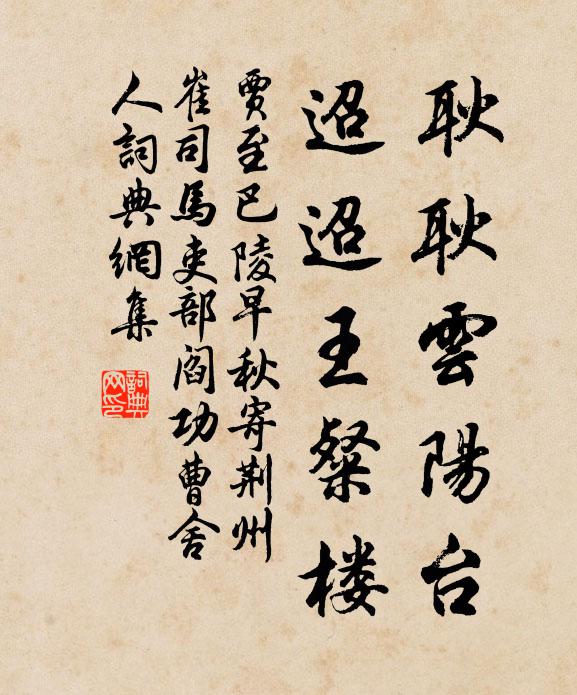 耿耿雲陽台
迢迢王粲楼
賈至巴陵早秋寄荆州
崔司馬吏部閻功曹舍
人詞典網集
詞典
网印